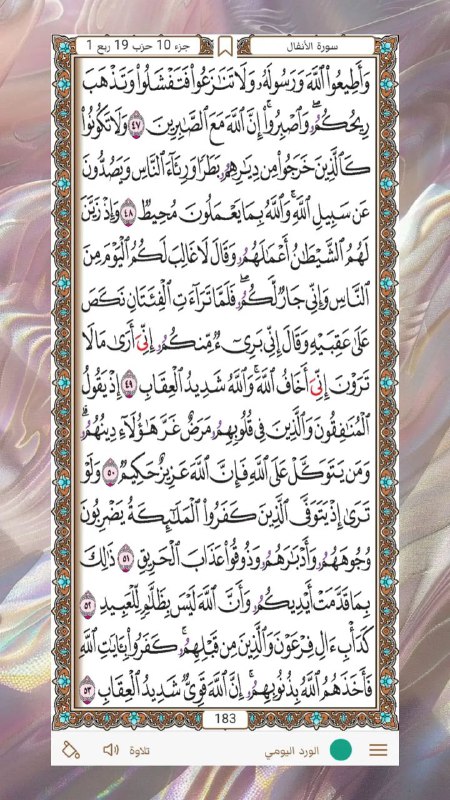 سورة الأنفال
جزء 10 حزب 19 ربع 1
وَأَطِيعُوا۟ اللَّهَ وَرَسُولَهُۥ وَلَا تَنَٰزَعُوا۟ فَتَفْشَلُوا۟ وَتَذْهَبَ
رِيحُكُمُۥ وَاصْبِرُوٓا۟ إِنَّ اللَّهَ مَعَ الصَّٰبِرِينَ ٤٧ وَلَا تَكُونُوا۟
كَالَّذِينَ خَرَجُوا۟ مِن دِيَٰرِهِمُۥ بَطَرًا وَرِئَآءَ النَّاسِ وَيَصُدُّونَ
عَن سَبِيلِ اللَّهِ وَاللَّهُ بِمَا يَعْمَلُونَ مُحِيطٌ ٤٨ وَإِذْ زَيَّنَ
لَهُمُ الشَّيْطَٰنُ أَعْمَٰلَهُمُۥ وَقَالَ لَا غَالِبَ لَكُمُ الْيَوْمَ مِنَ
النَّاسِ وَإِنِّي جَارٌ لَّكُمُۥ فَلَمَّا تَرَآءَتِ الْفِئَتَانِ نَكَصَ
عَلَىٰ عَقِبَيْهِ وَقَالَ إِنِّي بَرِيٓءٌ مِّنكُمُۥ إِنِّيَ أَرَىٰ مَا لَا
تَرَوْنَ إِنِّيَ أَخَافُ اللَّهَ وَاللَّهُ شَدِيدُ الْعِقَابِ ٤٩ إِذْ يَقُولُ
الْمُنَٰفِقُونَ وَالَّذِينَ فِي قُلُوبِهِمُۥ مَرَضٌ غَرَّ هَٰٓؤُلَآءِ دِينُهُمُۥ
وَمَن يَتَوَكَّلْ عَلَى اللَّهِ فَإِنَّ اللَّهَ عَزِيزٌ حَكِيمٌ ٥٠ وَلَوْ
تَرَىٰٓ إِذْ يَتَوَفَّى الَّذِينَ كَفَرُوا۟ الْمَلَٰٓئِكَةُ يَضْرِبُونَ
وُجُوهَهُمُۥ وَأَدْبَٰرَهُمُۥ وَذُوقُوا۟ عَذَابَ الْحَرِيقِ ٥١ ذَٰلِكَ
بِمَا قَدَّمَتْ أَيْدِيكُمُۥ وَأَنَّ اللَّهَ لَيْسَ بِظَلَّٰمٍ لِّلْعَبِيدِ ٥٢
كَدَأْبِ ءَالِ فِرْعَوْنَ وَالَّذِينَ مِن قَبْلِهِمُۥ كَفَرُوا۟ بِـَٔايَٰتِ اللَّهِ
فَأَخَذَهُمُ اللَّهُ بِذُنُوبِهِمُۥ إِنَّ اللَّهَ قَوِيٌّ شَدِيدُ الْعِقَابِ ٥٣
183
الورد اليومي
تلاوة